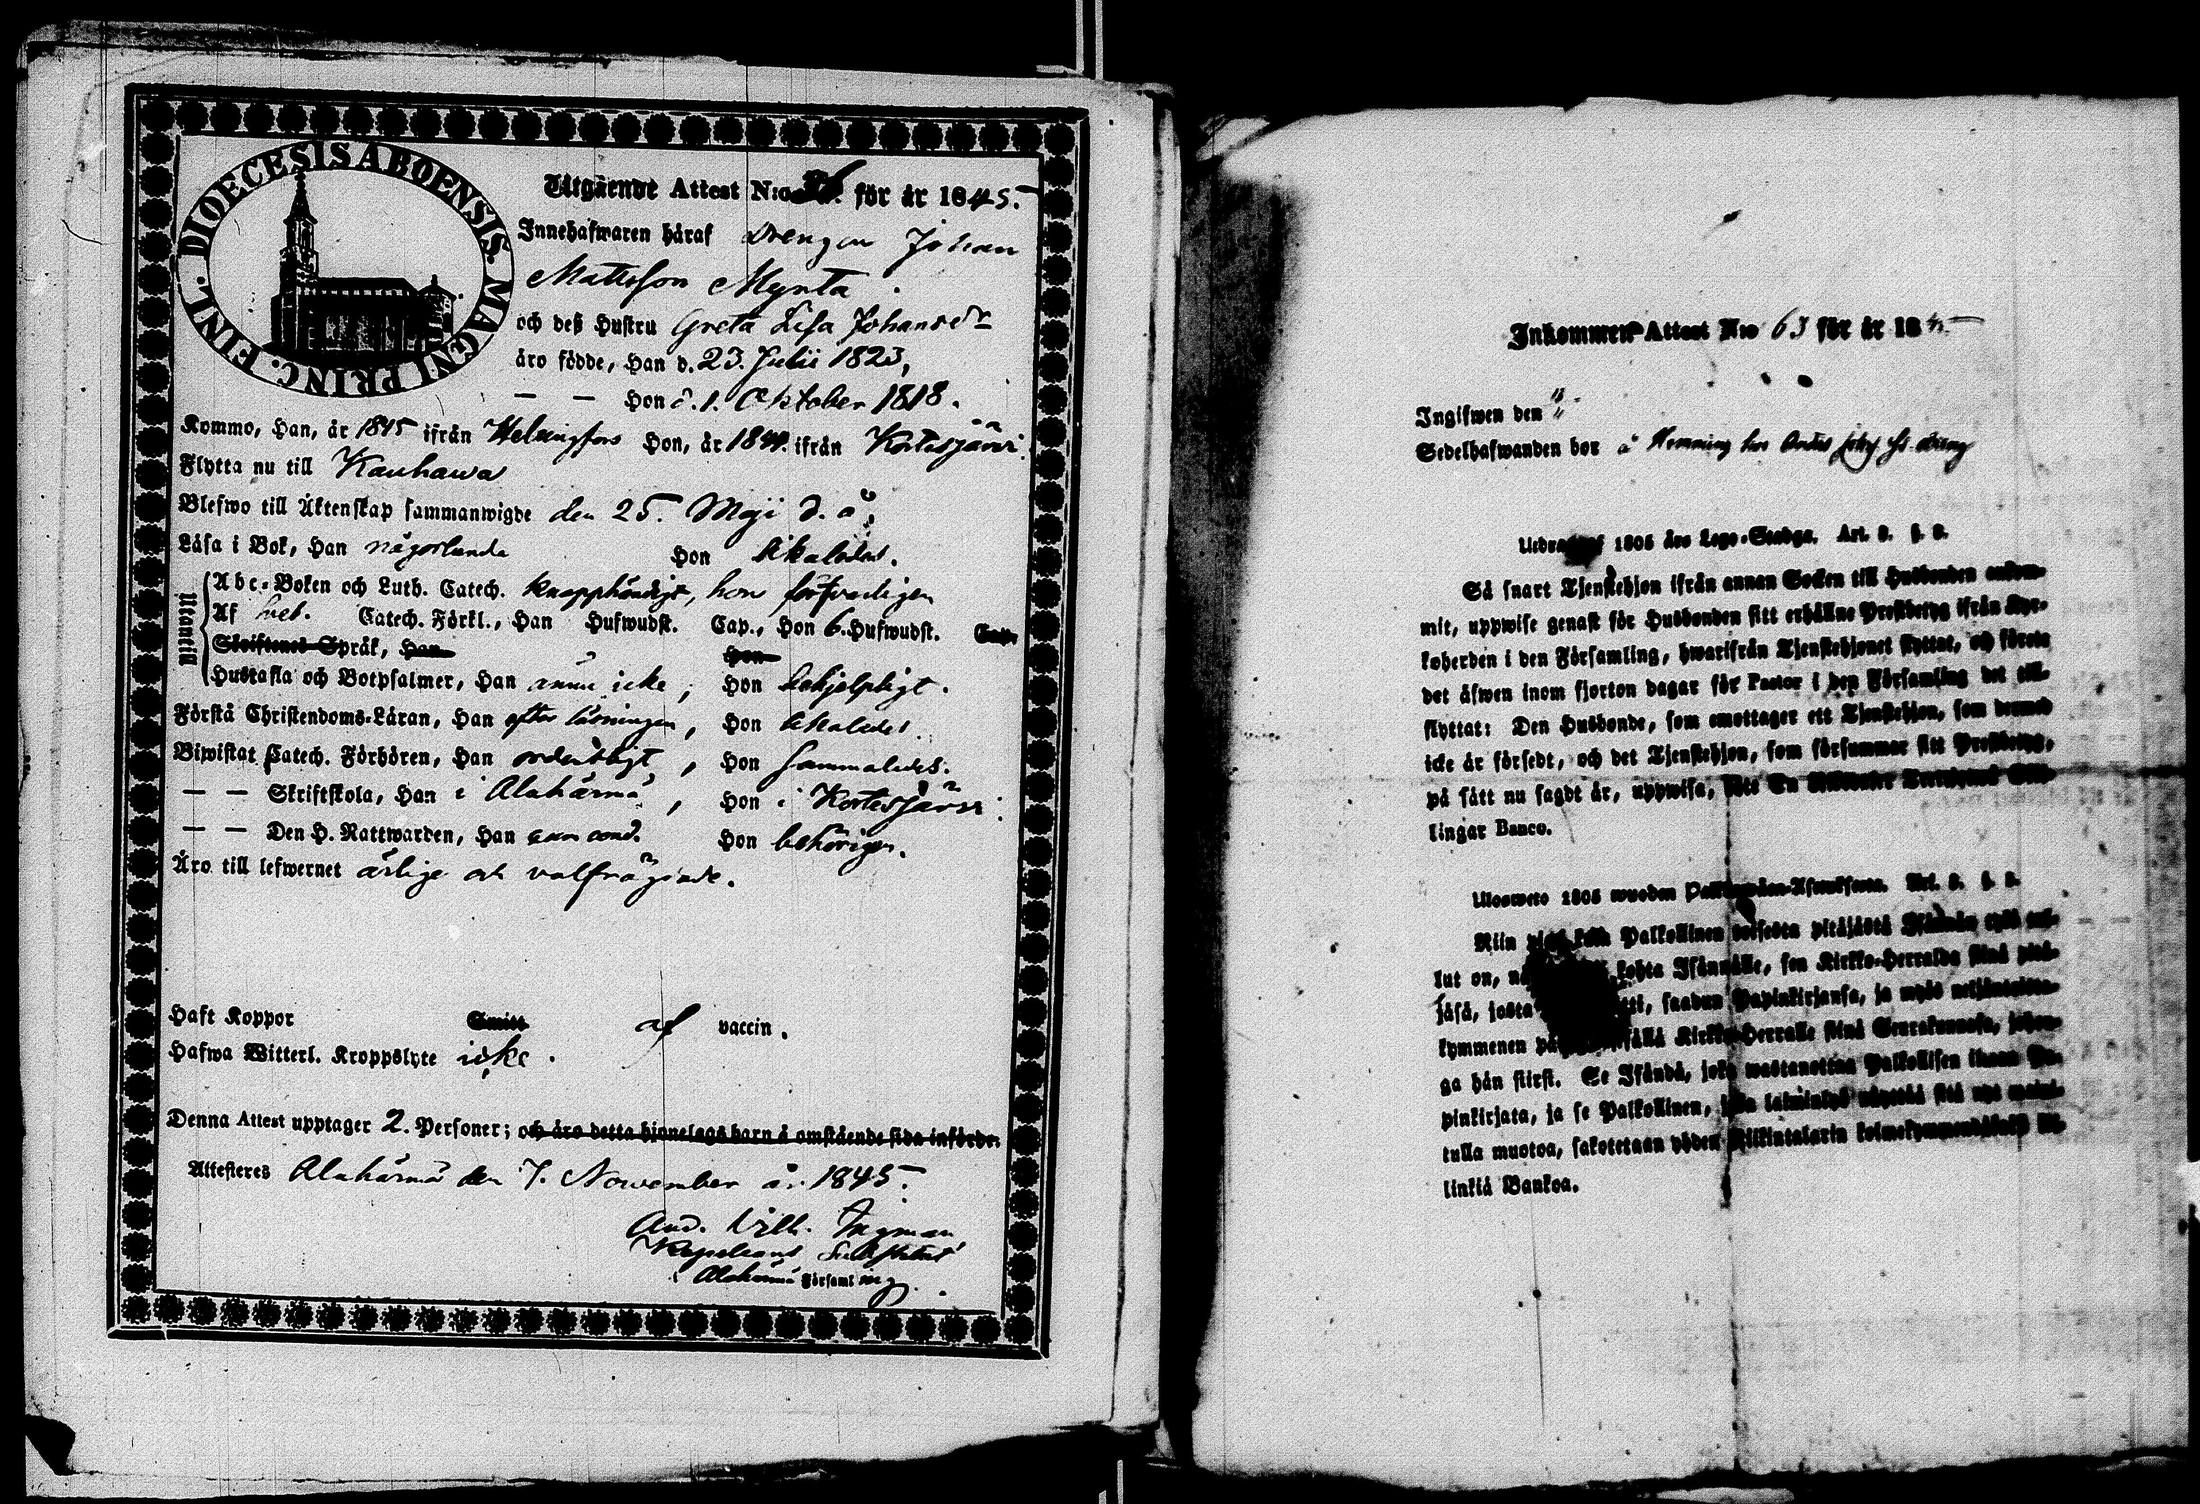 DIOECESIS ABOENSIS. MAGNI PRINC. FINL.
Utgående Attest N:o 36. för år 1845.
Innehafwaren häraf Drengen Johan
Mattsson Mynta.
och deß Hustru Greta Lisa Johansdr
äro födde, Han d. 23. Julii 1823,
— — Hon d. 1. Oktober 1818.
Kommo, Han, år 1845 ifrån Helsingfors Hon, år 1844. ifrån Kortesjärvi.
Flytta nu till Kauhawa
Blefwo till Äktenskap sammanwigde den 25. Maji d. å.
Läsa i Bok, Han någorlunda Hon likaledes.
Utantill
Abc-Boken och Luth. Catech. knapphändigt, hon försvarligen
Af Sveb. Catech. Förkl., Han Hufwudst. Cap., Hon 6. Hufwudst. Cap.
Skriftenes Språk, Han Hon
Hustafla och Botpsalmer, Han ännu icke, Hon behjelpligt.
Förstå Christendoms-Läran, Han efter läsningen, Hon likaledes.
Biwistat Catech. Förhören, Han ordentligt, Hon sammaledes.
— — Skriftskola, Han i Alahärmä, Hon i Kortesjärvi.
— — Den H. Nattwarden, Han Hon behörigen.
Äro till lefwernet ärlige och välfrägdade.
Haft Koppor Smitt af vaccin.
Hafwa Witterl. Kroppslyte icke.
Denna Attest upptager 2. Personer; och äro detta hjonelags barn å omstående sida införde.
Attesteres Alahärmä den 7. November år 1845.
And. Wilh. Ingman
Kapellans Substitut
i Alahärmä Församling.
Inkommen Attest N:o 63 för år 184
Ingifwen den "
Sedelhafwanden bor å Hemming hos
Utdrag af 1805 års Lego-Stadga. Art. 3. §. 3.
Så snart Tjenstehjon ifrån annan Socken till Husbonden ankom-
mit, uppwise genast för Husbonden sitt erhållne Prestbetyg ifrån Kyr-
koherden i den Församling, hwarifrån Tjenstehjonet flyttat, och förete
det äfwen inom fjorton dagar för Pastor i den Församling det till-
flyttat: Den Husbonde, som emottager ett Tjenstehjon, som dermed
icke är försedt, och det Tjenstehjon, som försummar sitt Prestbetyg,
på sätt nu sagdt är, uppwisa,
lingar Banco.
Ulosweto 1805 wuoden Palkollisten-Asetuksesta. Art. 3. §. 3.
Niin Palkollinen toisesta pitäjästä
lut on, kohta Isännälle, sen Kirkko-Herralda siinä pitä-
jäsä, josta saadun Papinkirjansa, ja myös neljäntoista-
kymmenen Kirkko-Herralle siinä Seurakunnasa, johon-
ga hän siirsi. Se Isändä, joka wastanottaa Palkollisen ilman Pa-
pinkirjata, ja se Palkollinen, joka laiminlyö näyttää sitä nyt maini-
tulla muotoa, sakotetaan yhden Riikintalarin kolmekymmendäkuusi kil-
linkiä Bankoa.